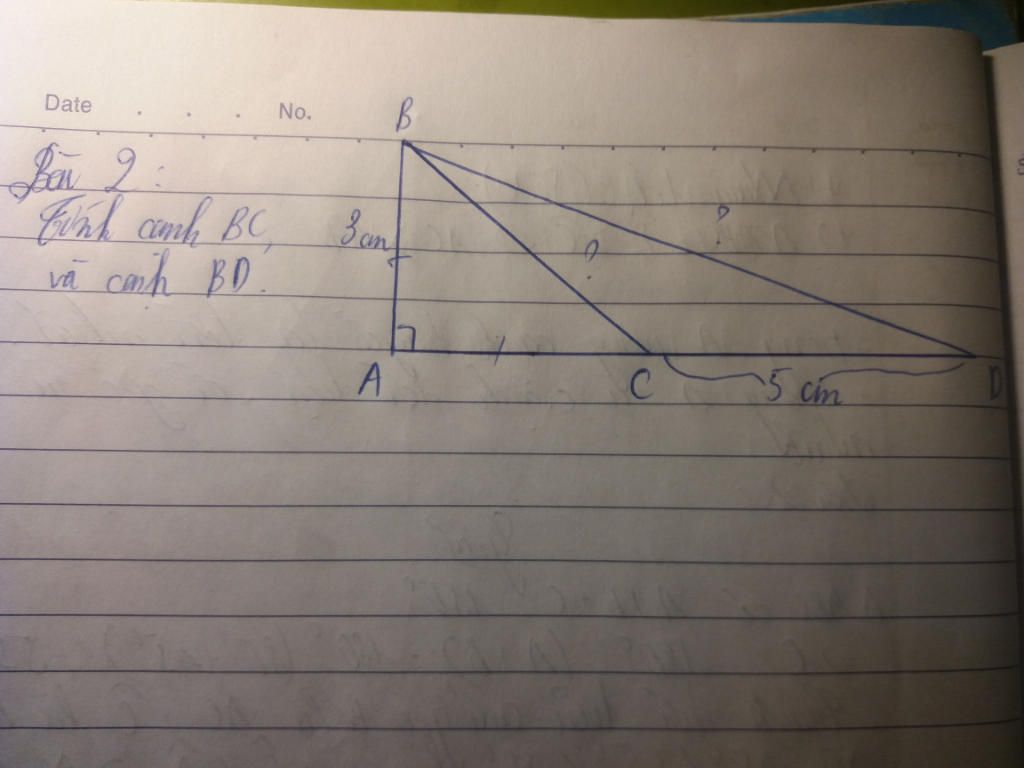 Date . . . No.
Bài 2:
Tính cạnh BC,
và cạnh BD.
B
3 cm
?
?
A
C
5 cm
D